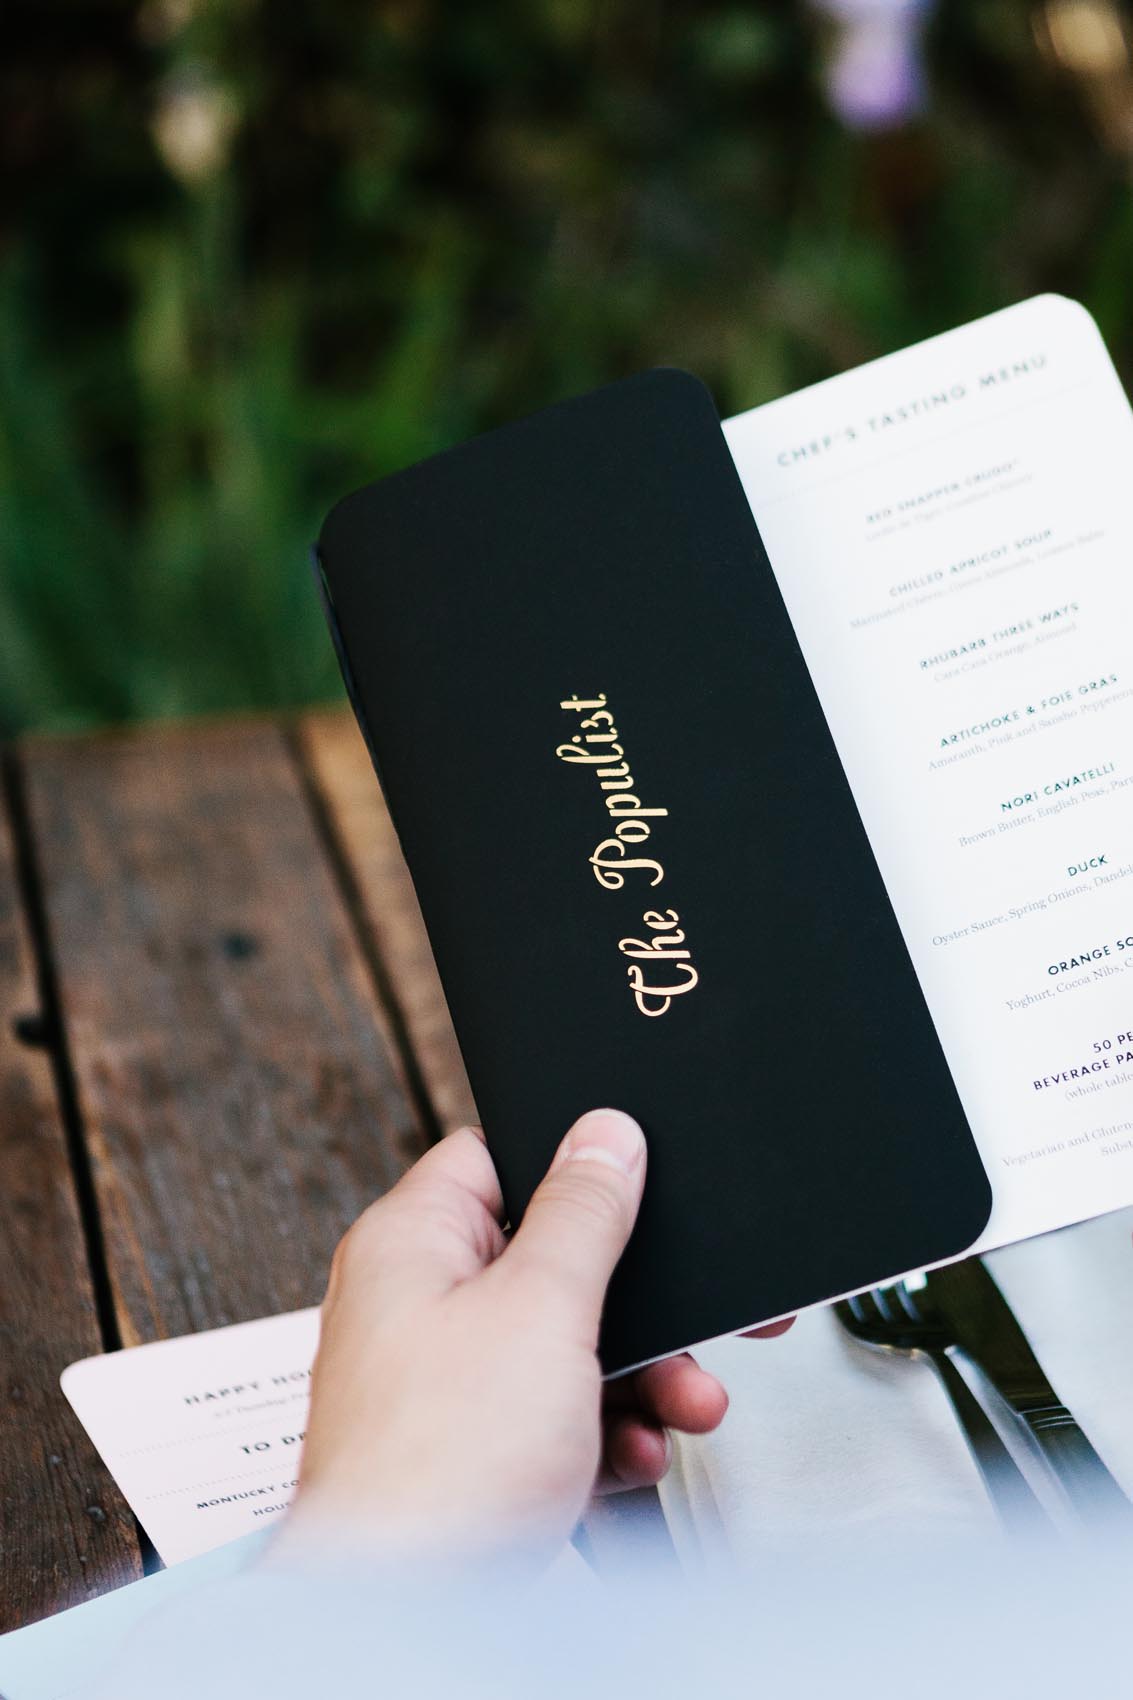 The Populist
CHEF'S TASTING MENU
RED SNAPPER CRUDO*
CHILLED APRICOT SOUP
Marinated Chèvre, Green Almonds, Lemon Balm
RHUBARB THREE WAYS
Cara Cara Orange, Almond
ARTICHOKE & FOIE GRAS
Amaranth, Pink and Sansho Peppercorn
NORI CAVATELLI
Brown Butter, English Peas, Par
DUCK
Oyster Sauce, Spring Onions, Dandel
ORANGE SO
Yoghurt, Cocoa Nibs, C
50 PE
BEVERAGE PA
(whole table
Vegetarian and Gluten
Subst
HAPPY HOU
TO DR
MONTUCKY CO
HOUS